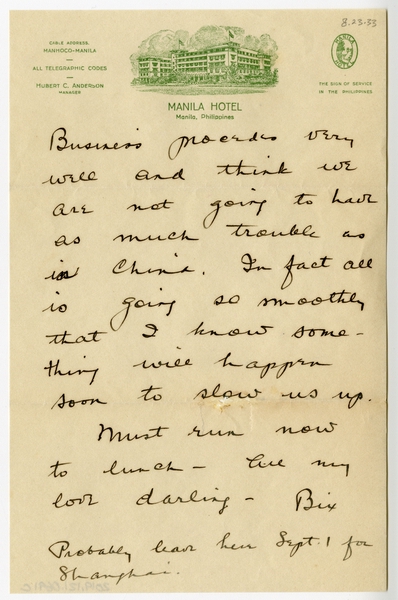 8.23-33
CABLE ADDRESS,
MANHOCO-MANILA
ALL TELEGRAPHIC CODES
HUBERT C. ANDERSON
MANAGER
MANILA
HOTEL
THE SIGN OF SERVICE
IN THE PHILIPPINES
MANILA HOTEL
Manila, Philippines
Business procedes very
well and think we
are not going to have
as much trouble as
in China. In fact all
is going so smoothly
that I know some-
thing will happen
soon to slow us up.
Must run now
to lunch - all my
love darling - Bix
Probably leave here Sept. 1 for
Shanghai.